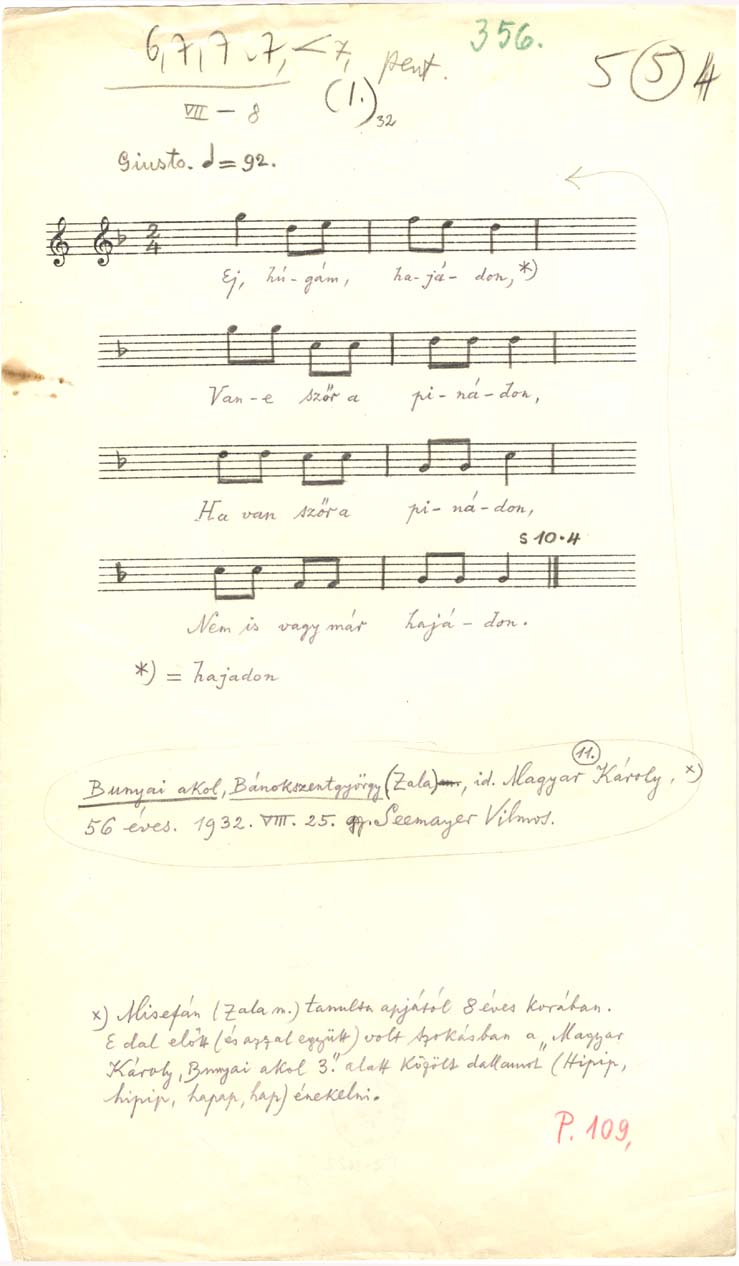 6,7,7 7, < 7, pent.
356.
5 (5) 4
VII – 8
(1.)32
Giusto. ♩ = 92.
2/4
Ej, hú-gám, ha-já-don, *)
Van-e szőr a pi-ná-don,
Ha van szőr a pi-ná-don,
S 10.4
Nem is vagy már hajá-don.
*) = hajadon
11.
Bunyai akol, Bánokszentgyörgy (Zala), id. Magyar Károly, x)
56 éves. 1932. VIII. 25. gy. Seemayer Vilmos.
x) Misefán (Zala m.) tanulta apjától 8 éves korában.
E dal előtt (és azzal együtt) volt szokásban a „Magyar
Károly, Bunyai akol 3." alatt közölt dallamot (Hipip,
hipip, hapap, hap) énekelni.
P. 109,